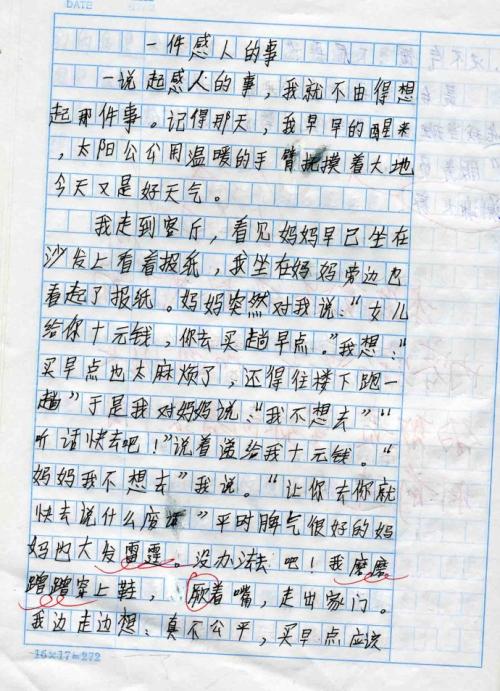 DATE
一件感人的事
一说起感人的事，我就不由得想
起那件事。记得那天，我早早的醒来
，太阳公公用温暖的手臂抚摸着大地
今天又是好天气。
我走到客厅，看见妈妈早已坐在
沙发上看着报纸，我坐在妈妈旁边也
看起了报纸。妈妈突然对我说：“女儿
给你十元钱，你去买趟早点。”我想：“
买早点也太麻烦了，还得往楼下跑一
趟”于是我对妈妈说：“我不想去”“
听话快去吧！”说着递给我十元钱。“
妈妈我不想去”我说。“让你去你就
快去说什么废话”平时脾气很好的妈
妈也大发雷霆。没办法去吧！我磨磨
蹭蹭穿上鞋，厥着嘴，走出家门。
我边走边想：真不公平，买早点应该
16×17=272